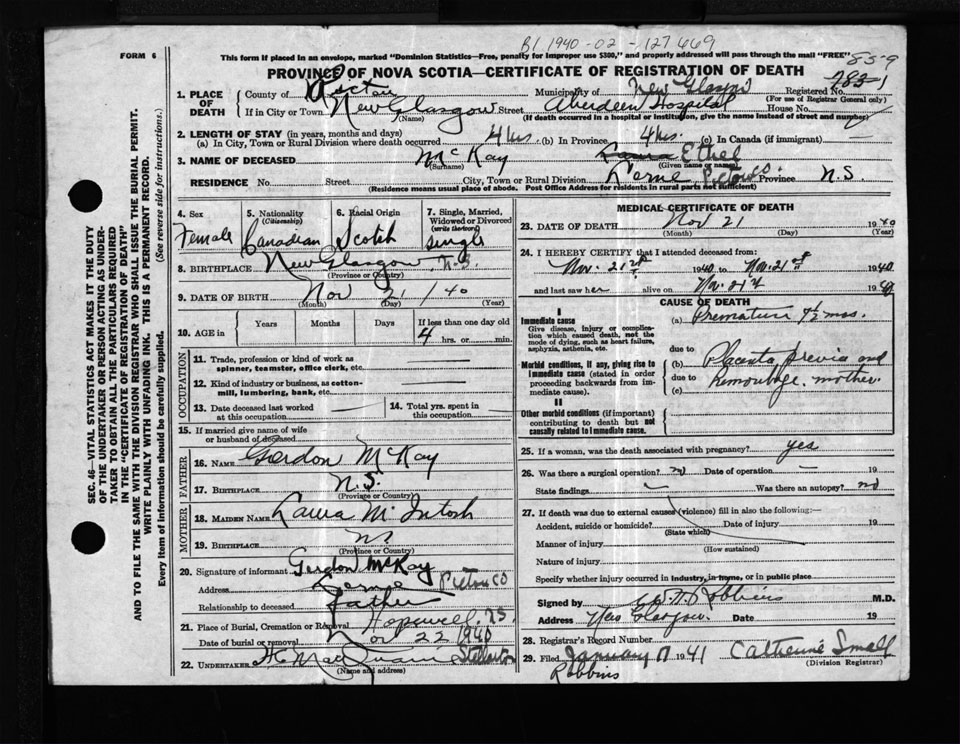 B1 1940-02-127669
FORM 6
This form if placed in an envelope, marked "Dominion Statistics—Free, penalty for improper use $300," and properly addressed will pass through the mail "FREE"
859
PROVINCE OF NOVA SCOTIA—CERTIFICATE OF REGISTRATION OF DEATH
1. PLACE OF DEATH
County of Pictou Municipality of New Glasgow Registered No. 783-1
(For use of Registrar General only)
If in City or Town New Glasgow Street Aberdeen Hospital House No.
(Name) (If death occurred in a hospital or institution, give the name instead of street and number)
2. LENGTH OF STAY (in years, months and days)
(a) In City, Town or Rural Division where death occurred 4 hrs. (b) In Province 4 hrs. (c) In Canada (if immigrant)
3. NAME OF DECEASED McKay Laura Ethel
(Surname) (Given name or names)
RESIDENCE No. Street City, Town or Rural Division Lorne Pictou Co. Province N.S.
(Residence means usual place of abode. Post Office Address for residents in rural parts not sufficient)
4. Sex Female
5. Nationality (Citizenship) Canadian
6. Racial Origin Scotch
7. Single, Married, Widowed or Divorced (write the word) single
8. BIRTHPLACE New Glasgow, N.S.
(Province or Country)
9. DATE OF BIRTH Nov 21/40
(Month) (Day) (Year)
10. AGE in Years Months Days If less than one day old
4 hrs. or min.
OCCUPATION
11. Trade, profession or kind of work as spinner, teamster, office clerk, etc.
12. Kind of industry or business, as cotton-mill, lumbering, bank, etc.
13. Date deceased last worked at this occupation
14. Total yrs. spent in this occupation
15. If married give name of wife or husband of deceased
FATHER
16. NAME Gordon McKay
17. BIRTHPLACE N.S.
(Province or Country)
MOTHER
18. MAIDEN NAME Laura McIntosh
19. BIRTHPLACE NS
(Province or Country)
20. Signature of informant Gordon McKay
Address Lorne Pictou Co
Relationship to deceased Father
21. Place of Burial, Cremation or Removal Hopewell, N.S.
Date of burial or removal Nov 22 1940
22. UNDERTAKER Stellarton
(Name and address)
MEDICAL CERTIFICATE OF DEATH
23. DATE OF DEATH Nov 21 1940
(Month) (Day) (Year)
24. I HEREBY CERTIFY that I attended deceased from:
Nov. 21st 1940 to Nov. 21st 1940
and last saw her alive on Nov. 21st 1940
CAUSE OF DEATH
I
Immediate cause
Give disease, injury or complication which caused death, not the mode of dying, such as heart failure, asphyxia, asthenia, etc.
(a) Premature 7½ mos.
due to
Morbid conditions, if any, giving rise to immediate cause (stated in order proceeding backwards from immediate cause).
(b) Placenta previa and
due to hemorrhage, mother.
(c)
II
Other morbid conditions (if important) contributing to death but not causally related to immediate cause.
25. If a woman, was the death associated with pregnancy? yes
26. Was there a surgical operation? no Date of operation — 19
State findings — Was there an autopsy? no
27. If death was due to external causes (violence) fill in also the following:—
Accident, suicide or homicide? Date of injury 19
(State which)
Manner of injury
(How sustained)
Nature of injury
Specify whether injury occurred in industry, in home, or in public place
Signed by Robbins M.D.
Address New Glasgow. Date 19
28. Registrar's Record Number
29. Filed January 17 1941 Catherine Small
(Division Registrar)
Robbins
SEC. 46—VITAL STATISTICS ACT MAKES IT THE DUTY
OF THE UNDERTAKER OR PERSON ACTING AS UNDER-
TAKER TO OBTAIN ALL THE PARTICULARS REQUIRED
IN THE "CERTIFICATE OF REGISTRATION OF DEATH"
AND TO FILE THE SAME WITH THE DIVISION REGISTRAR WHO SHALL ISSUE THE BURIAL PERMIT.
WRITE PLAINLY WITH UNFADING INK. THIS IS A PERMANENT RECORD.
Every item of information should be carefully supplied. (See reverse side for instructions.)